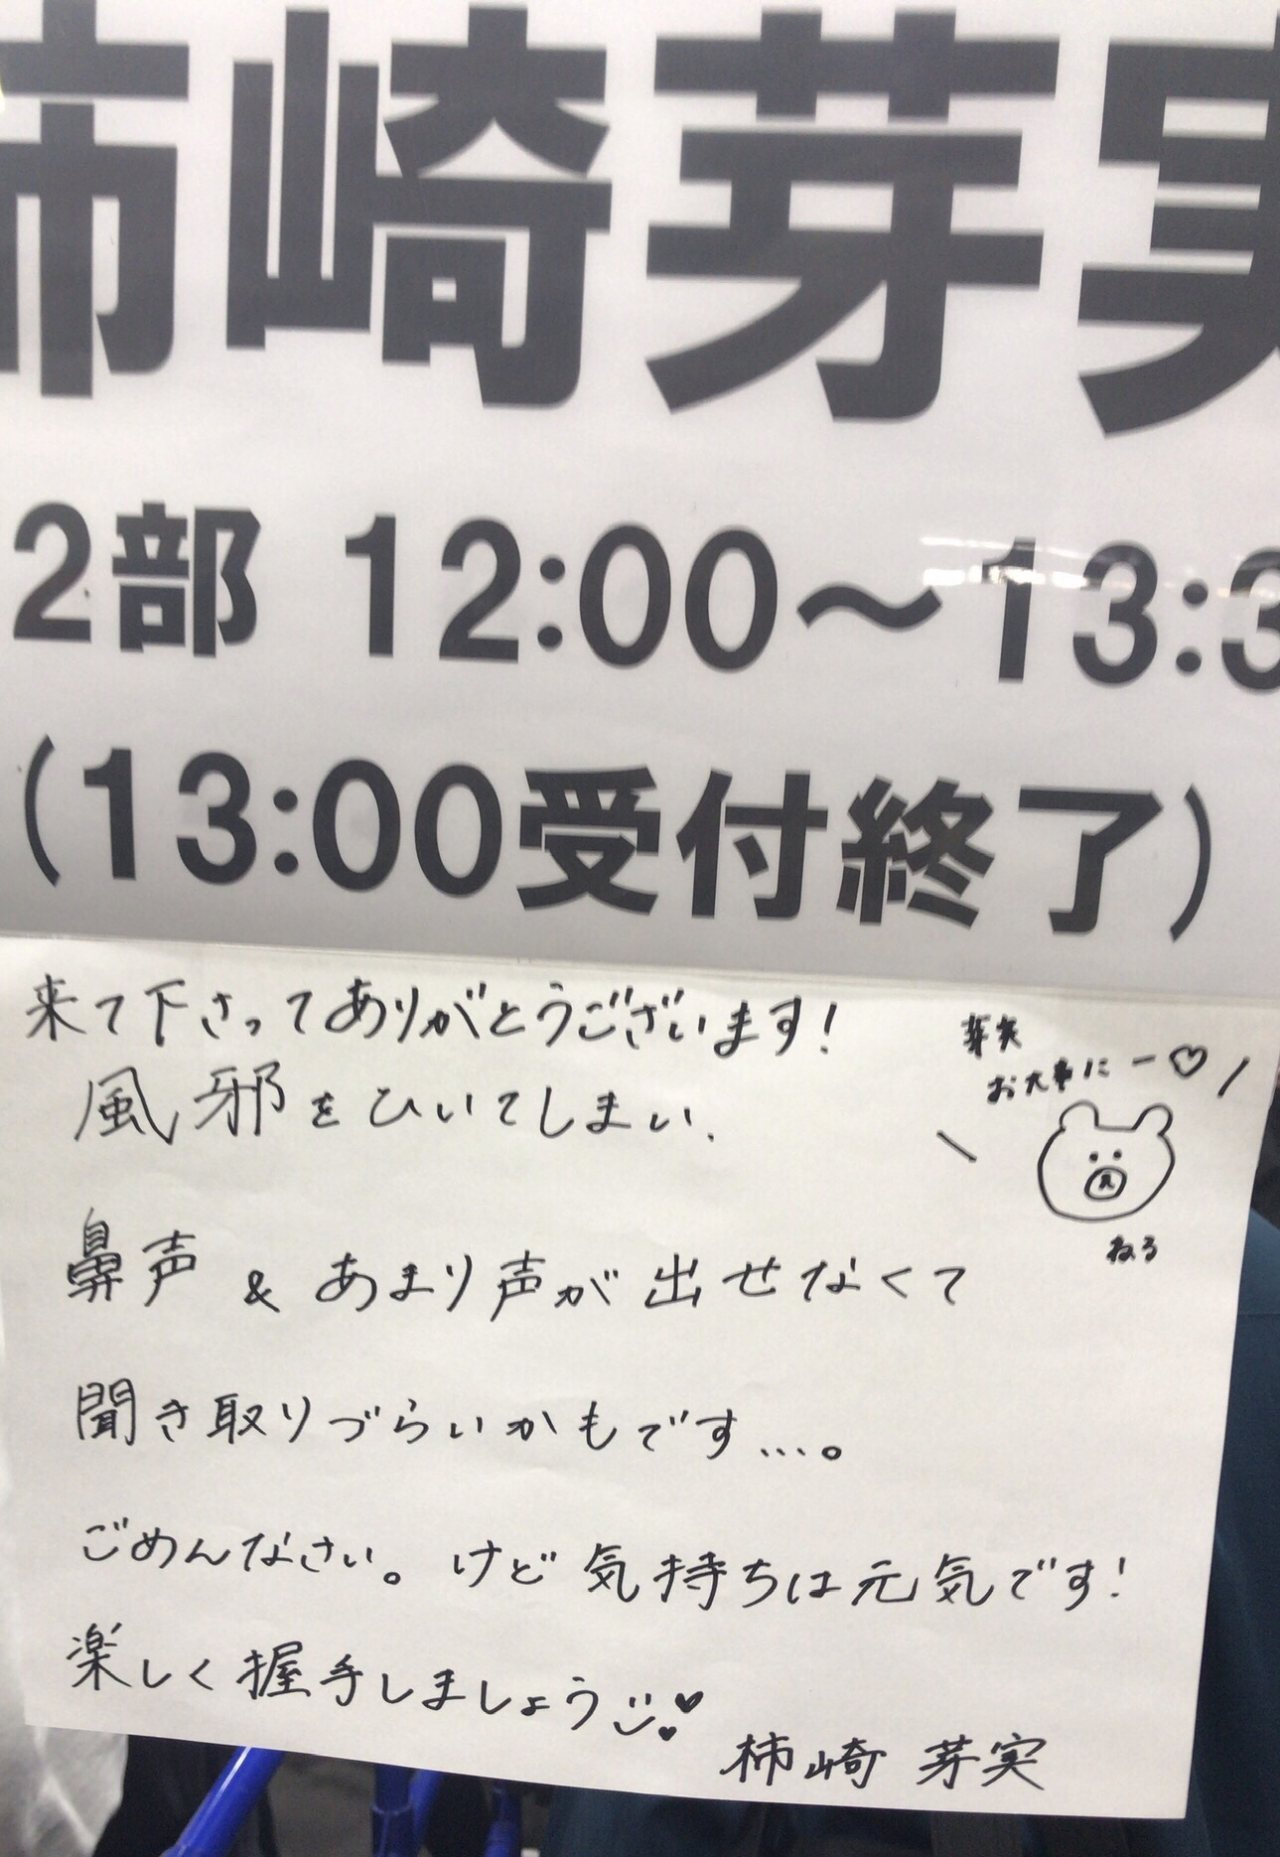 柿崎芽実
2部 12:00～13:3
(13:00受付終了)
来て下さってありがとうございます!
風邪をひいてしまい、
鼻声 & あまり声が出せなくて
聞き取りづらいかもです...。
ごめんなさい。けど気持ちは元気です!
楽しく握手しましょう
柿崎 芽実
芽実
お大事にー♡
ねる